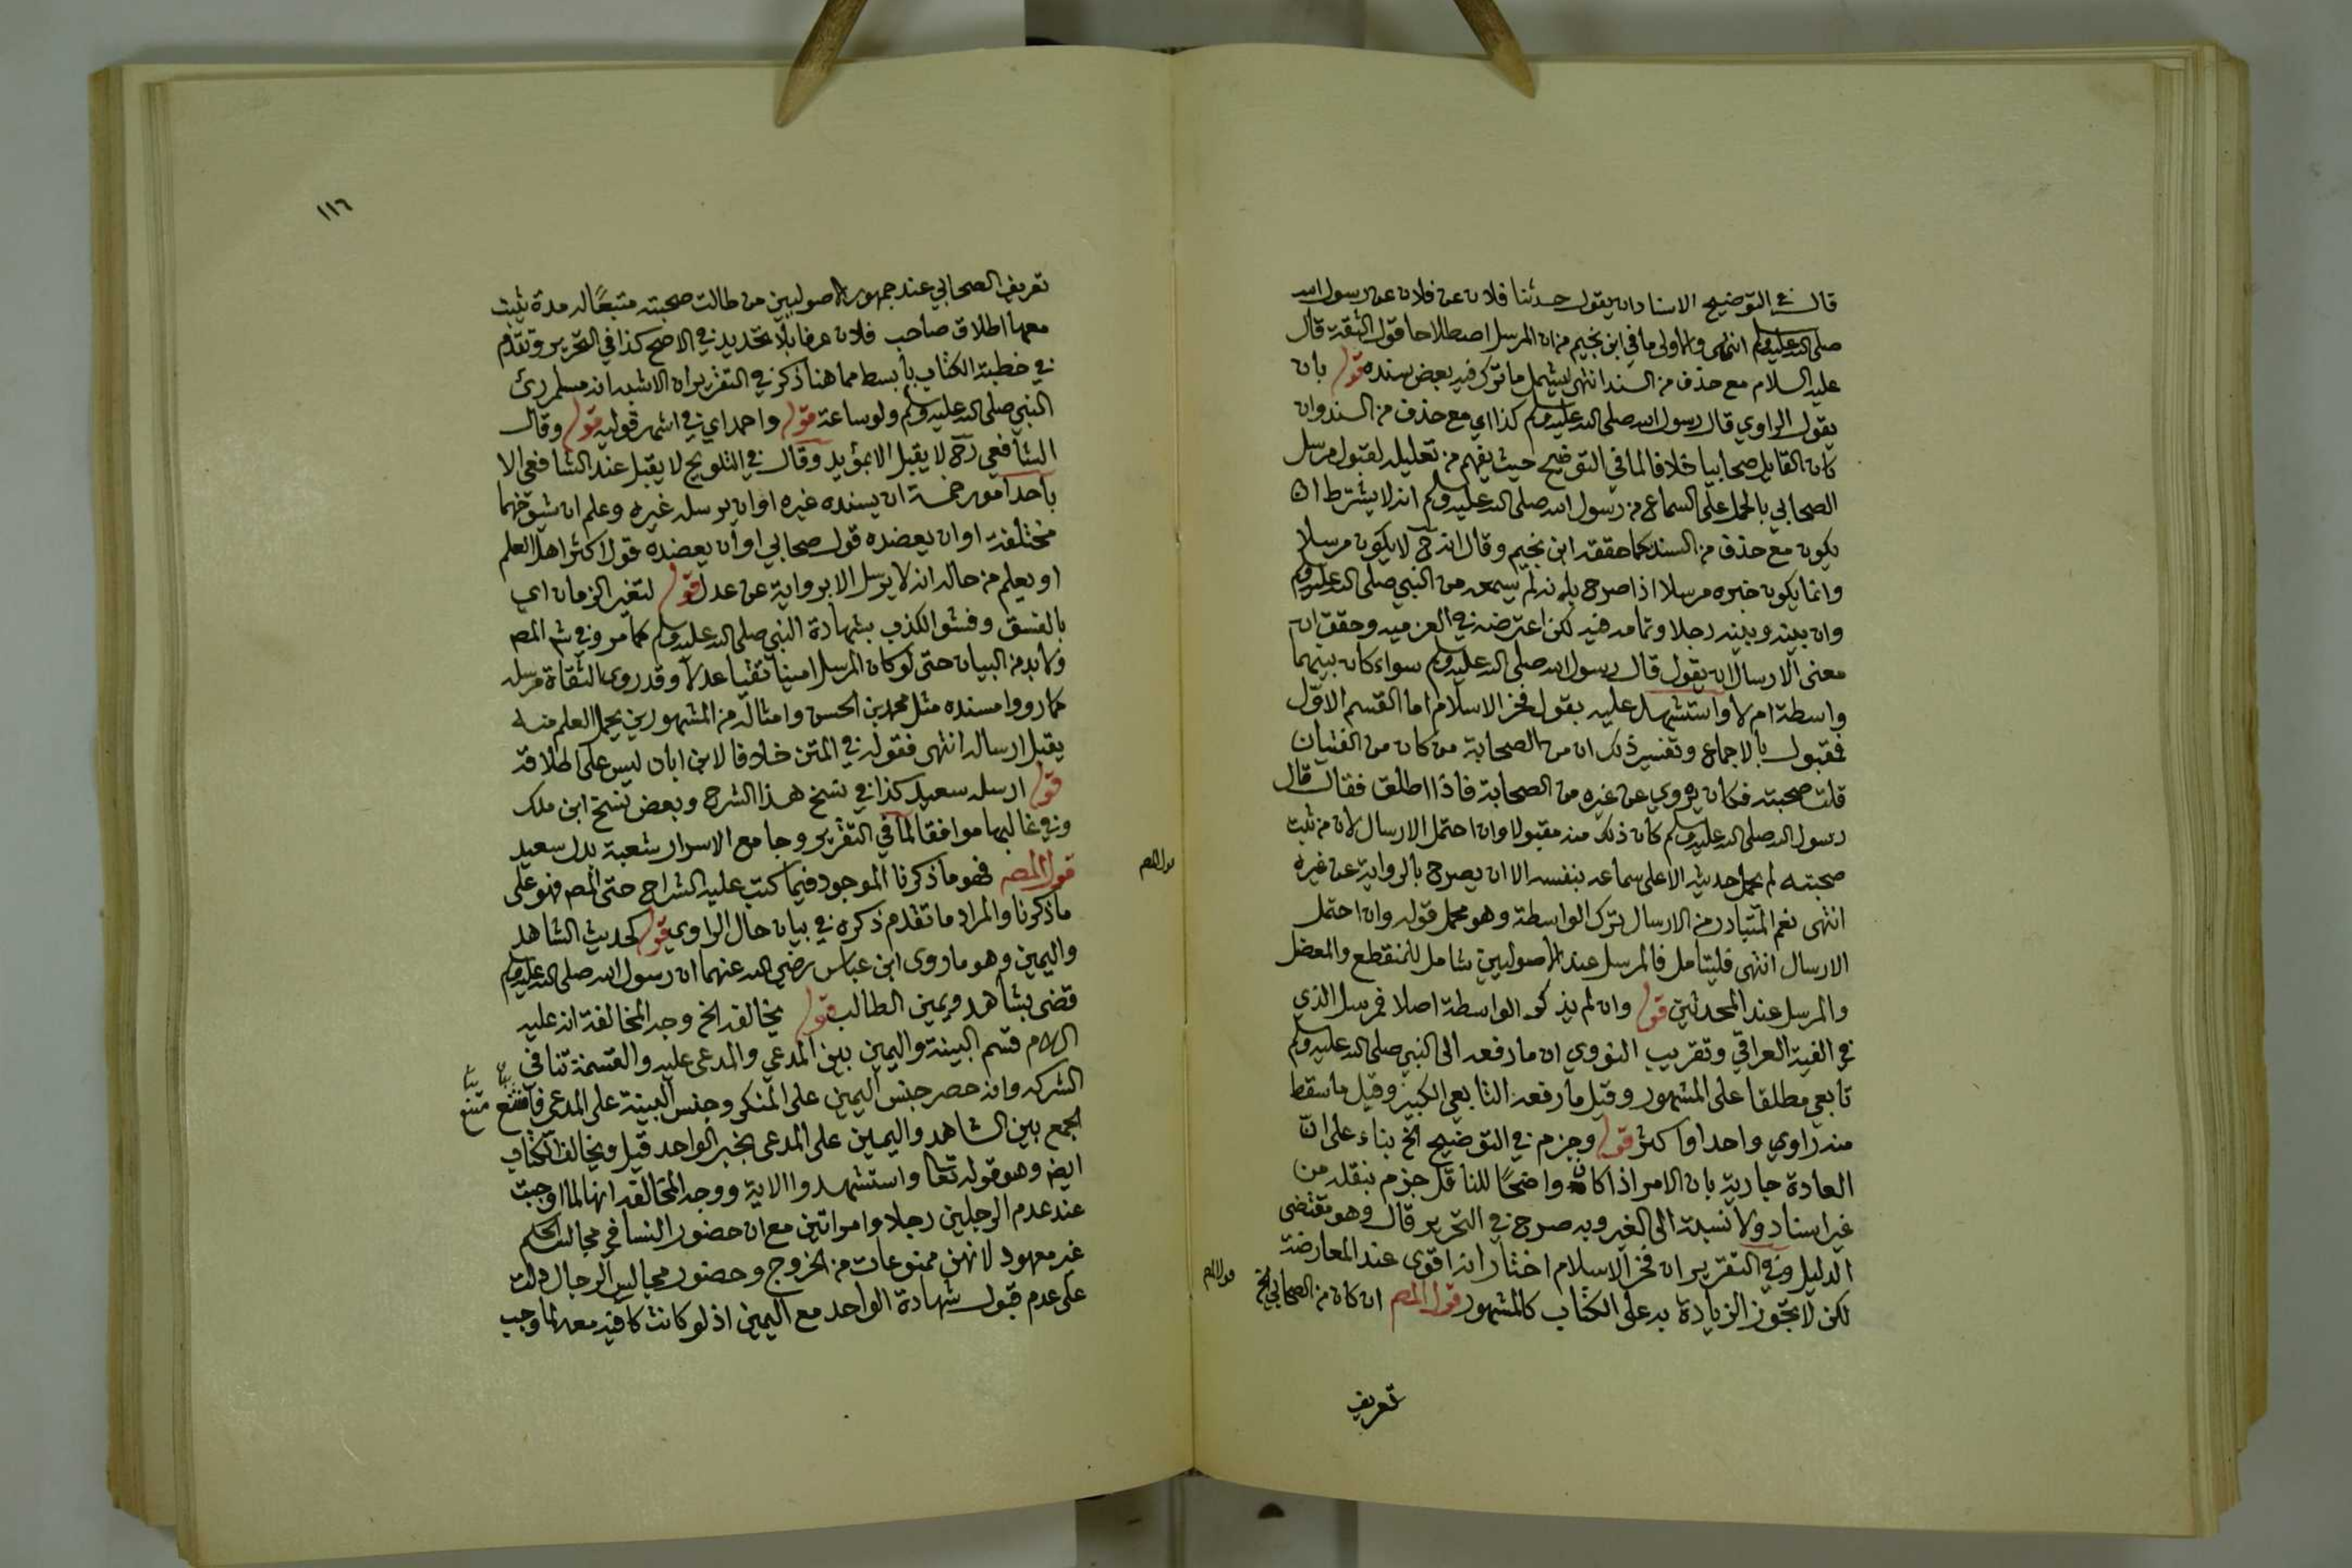 قال في التوضيح الاسناد ان يقول حدثنا فلان عن فلان عن رسول الله
صلى الله عليه وسلم انتهى والاولى ما في ابن نجيم من ان المرسل اصطلاحا قول الثقة قال
عليه السلام مع حذف من السند انتهى ليشمل ما ترك فيه بعض سنده قوله بان
يقول الراوي قال رسول الله صلى الله عليه وسلم كذا اي مع حذف من السند وان
كان القايل صحابيا خلافا لما في التوضيح حيث يفهم من تعليله لقبول مرسل
الصحابي بالحمل على السماع من رسول الله صلى الله عليه وسلم انه لا يشترط ان
يكون مع حذف من السند كما حققه ابن نجيم وقال انه ح لا يكون مرسلا
وانما يكون خبره مرسلا اذا صرح بانه لم يسمعه من النبي صلى الله عليه وسلم
وان بينه وبينه رجلا وتمامه فيه لكن اعترضه في العزميه وحقق ان
معنى الارسال ان يقول قال رسول الله صلى الله عليه وسلم سواء كان بينهما
واسطة ام لا واستشهد عليه بقول فخر الاسلام اما القسم الاول
فمقبول بالاجماع وتفسير ذلك ان من الصحابة من كان من الفتيان
قلت صحبته فكان يروي عن غيره من الصحابة فاذا اطلق فقال قال
رسول الله صلى الله عليه وسلم كان ذلك منه مقبولا وان احتمل الارسال لان من ثبت
صحبته لم يحمل حديثه الا على سماعه بنفسه الا ان يصرح بالرواية عن غيره
انتهى نعم المتبادر من الارسال ترك الواسطة وهو محمل قوله وان احتمل
الارسال انتهى فليتامل فالمرسل عند الاصوليين شامل للمنقطع والمعضل
والمرسل عند المحدثين قوله وان لم يذكر الواسطة اصلا فمرسل الذي
في الفية العراقي وتقريب النووي ان ما رفعه الى النبي صلى الله عليه وسلم
تابعي مطلقا على المشهور وقيل ما رفعه التابعي الكبير وقيل ما سقط
منه راوي واحد او اكثر قوله وجزم في التوضيح الخ بناء على ان
العادة جارية بان الامر اذا كان واضحًا للناقل جزم بنقله من
غير اسناد ولا نسبة الى الغير وبه صرح في التحرير قال وهو مقتضى
الدليل وفي التقرير ان فخر الاسلام اختار انه اقوى عند المعارضة
لكن لا تجوز الزيادة به على الكتاب كالمشهور قول المص ان كان من الصحابي الخ
قول المص
تعريف
١١٦
تعريف الصحابي عند جمهور الاصوليين من طالت صحبته متبعًا له مدة يثبت
معها اطلاق صاحب فلان عرفا بلا تحديد في الاصح كذا في التحرير وتقدم
في خطبة الكتاب بأبسط مما هنا ذكر في التقرير ان الاشبه انه مسلم رئ
النبي صلى الله عليه وسلم ولو ساعة قوله واحمد اي في اشهر قوليه قوله وقال
الشافعي رح لا يقبل الا بمؤيد وقال في التلويح لا يقبل عند الشافعي الا
باحد امور خمسة ان يسنده غيره او ان يرسله غيره وعلم ان شيوخهما
مختلفة او ان يعضده قول صحابي او ان يعضده قول اكثر اهل العلم
او يعلم من حاله انه لا يرسل الا بروايته عن عدل قوله لتغير الزمان اي
بالفسق وفشو الكذب بشهادة النبي صلى الله عليه وسلم كما مر وفي شرح المص
ولا بد من البيان حتى لو كان المرسل امينا تقيا عدلا وقد روى الثقاة مرسله
كما رووا مسنده مثل محمد بن الحسن وامثاله من المشهورين يحمل العلم منه
يقبل ارساله انتهى فقوله في المتن خلافا لابن ابان ليس على اطلاقه
قوله ارسله سعيد كذا في نسخ هذا الشرح وبعض نسخ ابن ملك
وفي غالبها موافقا لما في التقرير وجامع الاسرار شعبة بدل سعيد
قول المص فهو ما ذكرنا الموجود فيما كتب عليه الشراح حتى المص فهو على
قول المص
ما ذكرنا والمراد ما تقدم ذكره في بيان حال الراوي قوله كحديث الشاهد
واليمين وهو ما روى ابن عباس رضي الله عنهما ان رسول الله صلى الله عليه وسلم
قضى بشاهد ويمين الطالب قوله يخالفه الخ وجه المخالفة انه عليه
السلام قسم البينة واليمين بين المدعي والمدعى عليه والقسمة تنافي
الشركه وانه حصر جنس اليمين على المنكر وجنس البينة على المدعي فامتنع
الجمع بين الشاهد واليمين على المدعي بخبر الواحد قيل ويخالف الكتاب
ايضا وهو قوله تعا واستشهدوا الاية ووجه المخالفه انها لما اوجبت
عند عدم الرجلين رجلا وامراتين مع ان حضور النسا في مجالس الحكم
غير معهود لانهن ممنوعات من الخروج وحضور مجالس الرجال دلت
على عدم قبول شهادة الواحد مع اليمين اذ لو كانت كافيه معه لما وجب